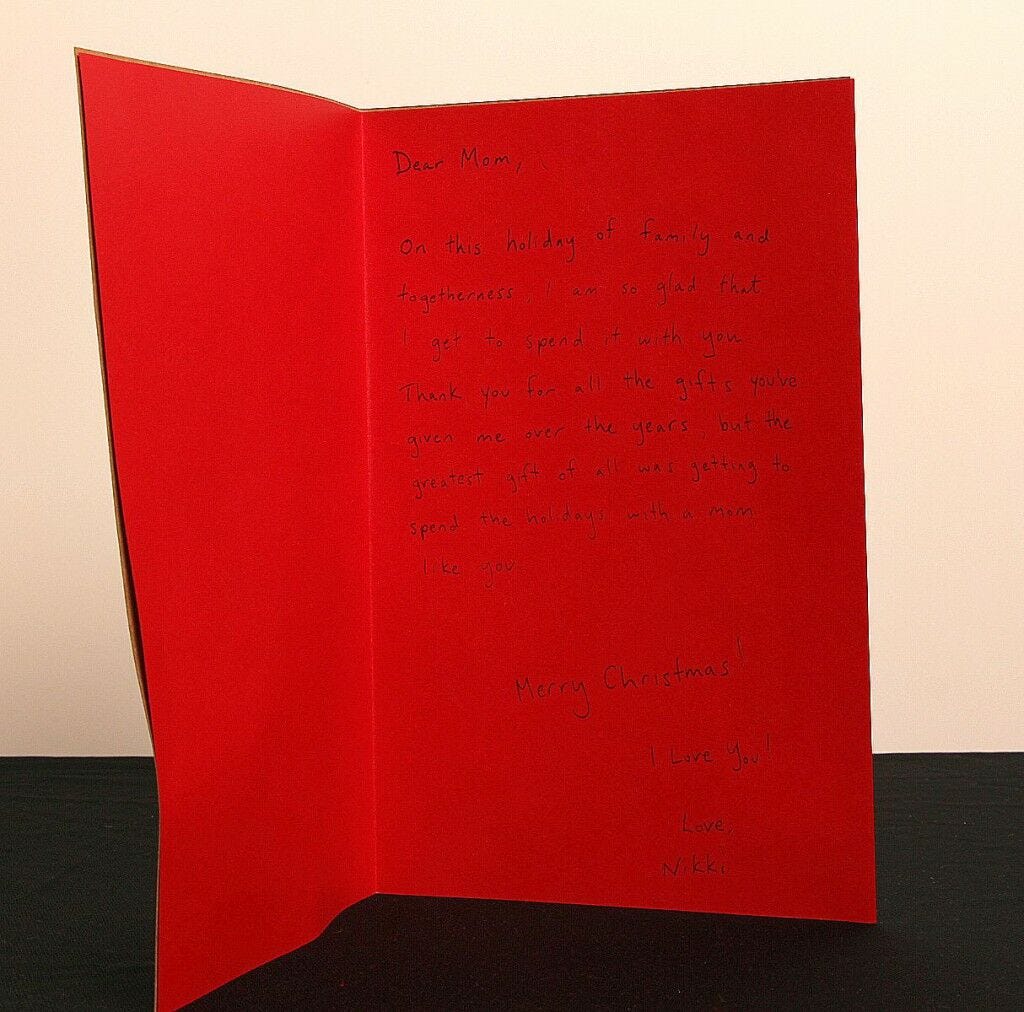 Dear Mom,
On this holiday of family and
togetherness, I am so glad that
I get to spend it with you
Thank you for all the gifts you've
given me over the years, but the
greatest gift of all was getting to
spend the holidays with a mom
like you
Merry Christmas!
I Love You!
Love,
Nikki